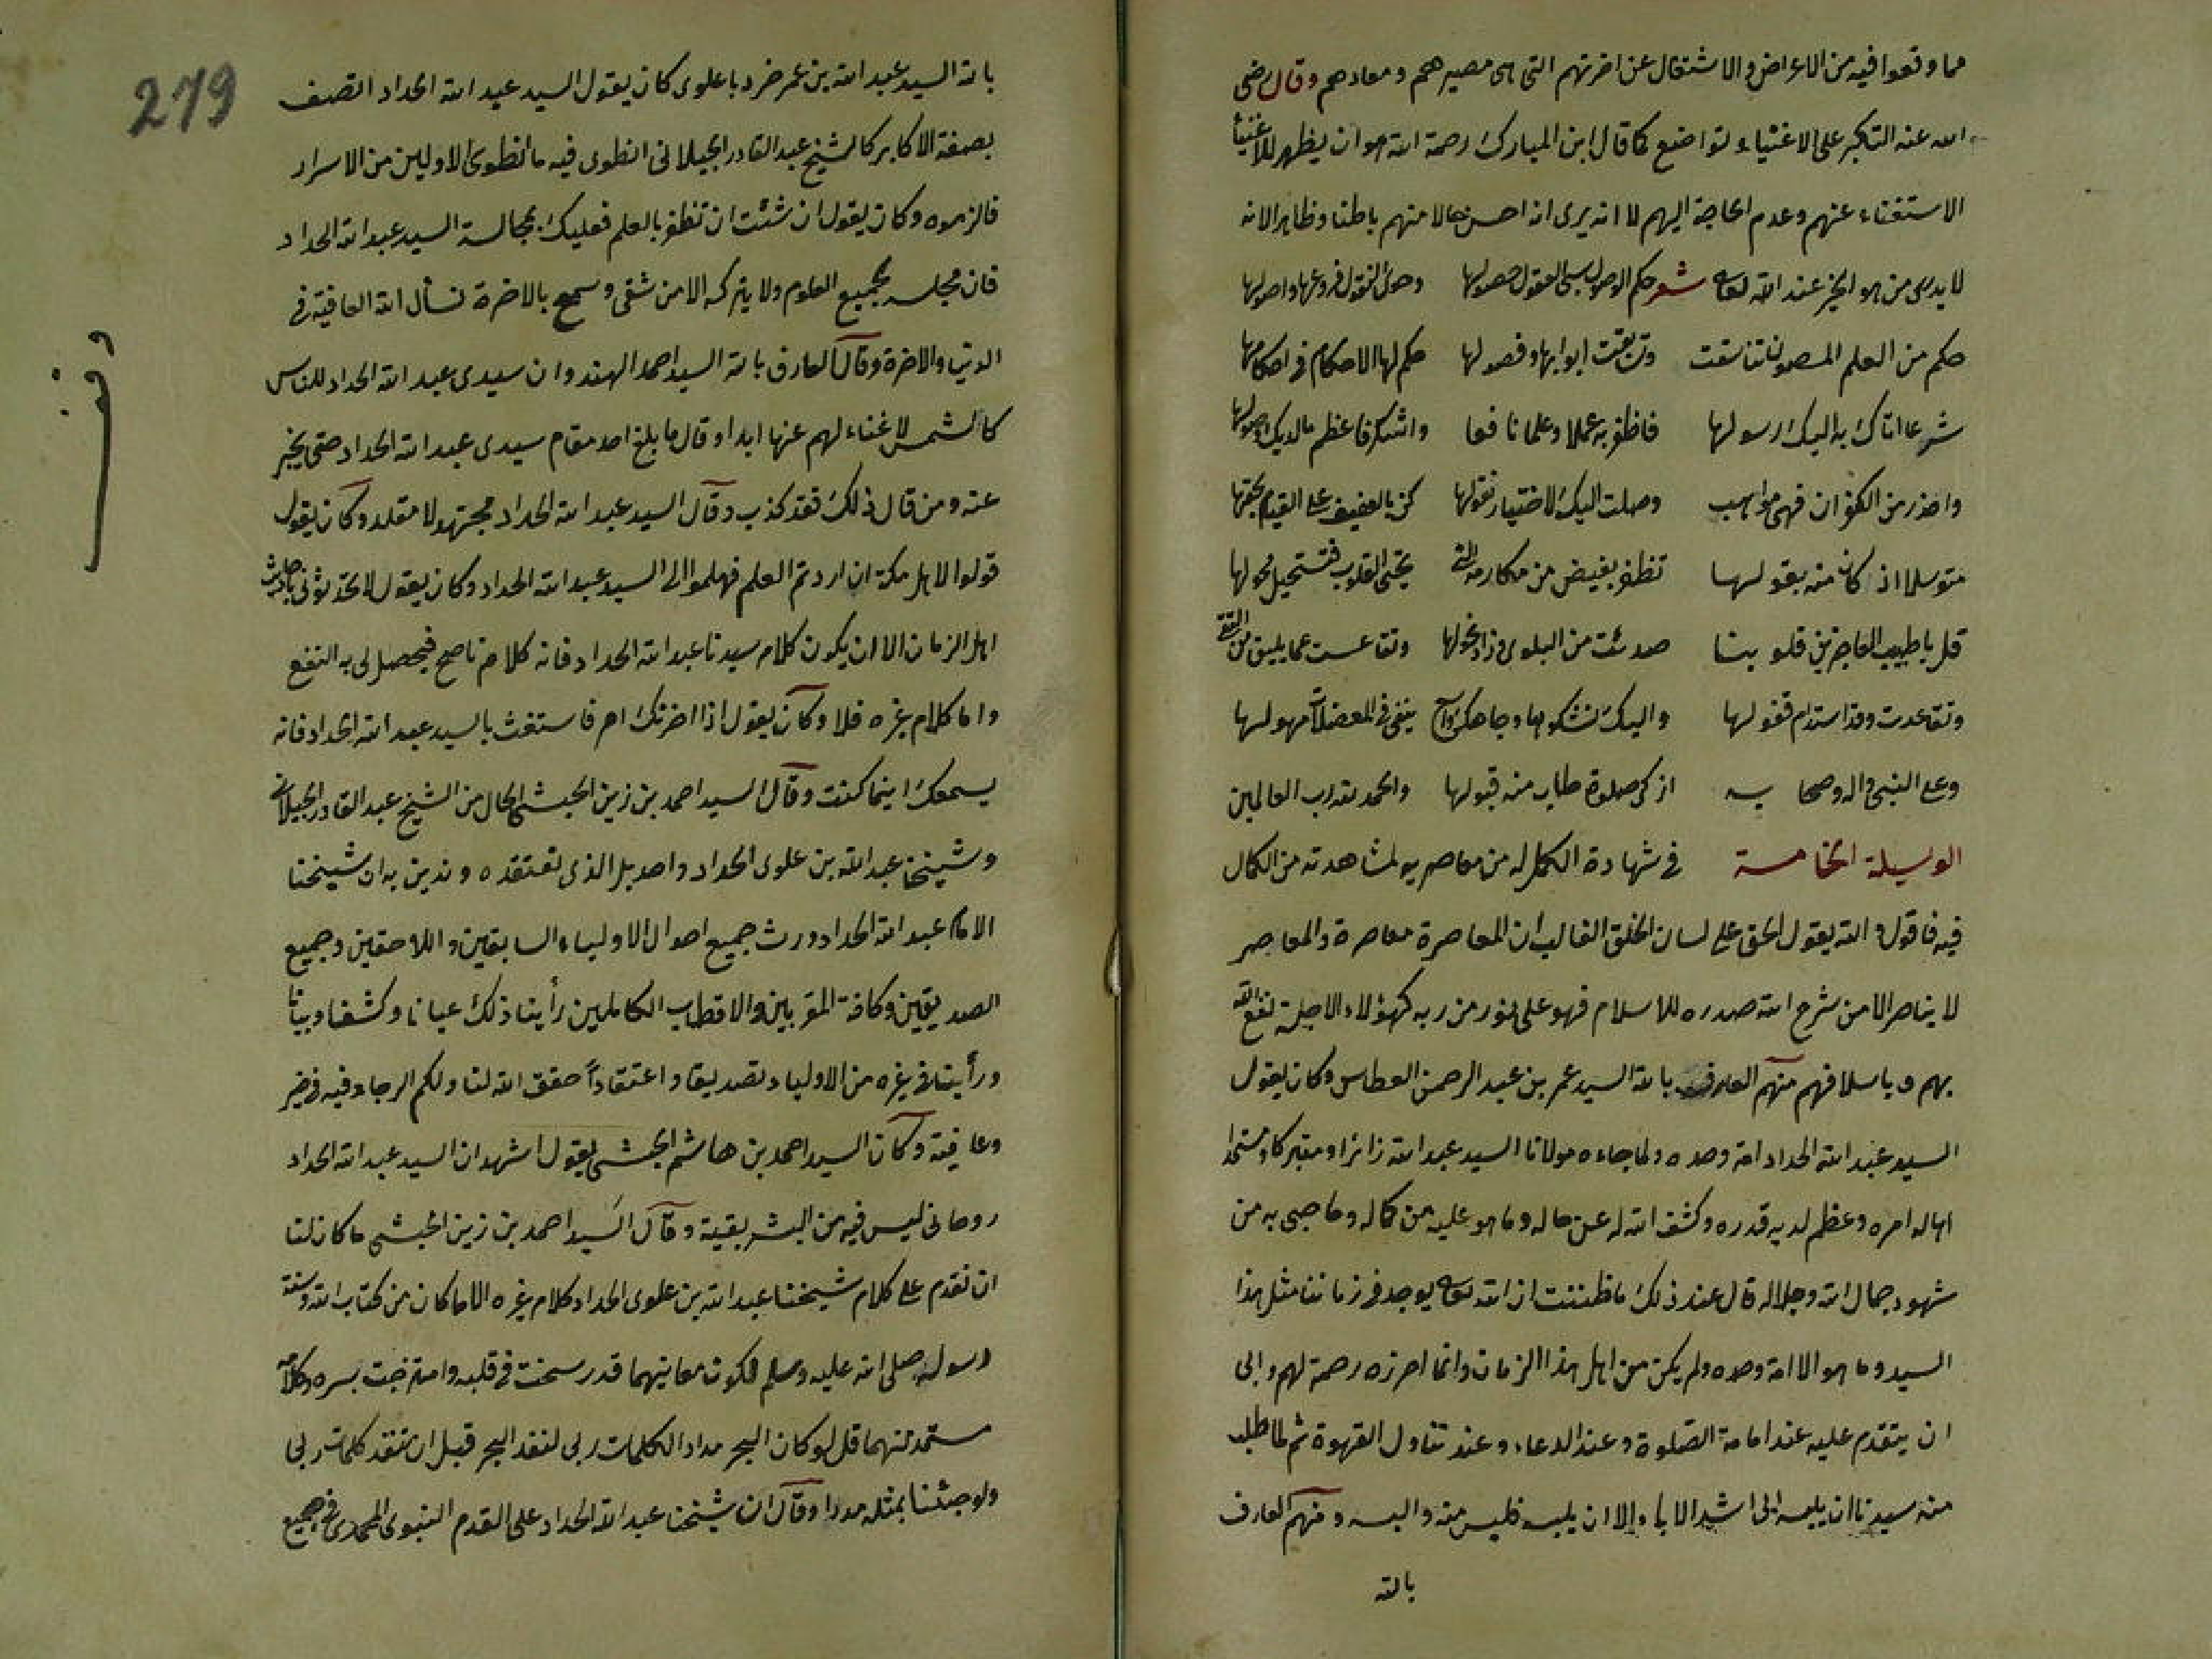 مما وقعوا فيه من الاعراض والاشتغال عن اخرتهم التى هى مصيرهم ومعادهم وقال رضى
الله عنه التكبر على الاغنياء تواضع كما قال ابن المبارك رحمة الله هو ان يظهر للاغنيأ
الاستغناء عنهم وعدم الحاجة اليهم لا انه يرى انه احسن حالا منهم باطنا وظاهرا لانه
لا يدرى من هو الخير عند الله تعالى شعر حكم الوصول العقول حصولها وحوت النقول فروعها واصولها
حكم من العلم المصون تناسقت وتريقت ابوابها وفصولها حكم لها الاحكام فى احكامها
شرعا اتاك به اليك رسولها فاظفر به عملا وعلما نافعا واشكر فاعظم مالديك وصولها
واحذر من الكفران فهى مواهب وصلت اليك لاختيار نقولها كن بالعفيف على القيام بحقها
متوسلا اذ كان منه بقولها تظفر بفيض من مكارمه التى يحيى القلوب فتستحيل محولها
قل يا طبيب العاجزين قلوبنا صدئت من البلوى فزاد نحولها وتقاعست عما يليق من التقى
وتقاعدت وقد استدام قفولها واليك نشكوها وجاهك واسع ينفى فى المعضلات مهولها
وعلى النبى واله وصحابه ازكى صلوة طاب منه قبولها والحمد لله رب العالمين
الوسيلة الخامسة فى شهادة الكمل له من معاصريه لمشاهدته من الكمال
فيه فاقول والله يقول الحق على لسان الخلق الغالب ان المعاصرة معاصرة والمعاصر
لا يناصر الا من شرح الله صدره للاسلام فهو على نور من ربه كهؤلاء الاجلة نفع الله
بهم وباسلافهم منهم العارف بالله السيد عمر بن عبد الرحمن العطاس وكان يقول
السيد عبد الله الحداد امة وحده ولما جاءه مولانا السيد عبد الله زائرا ومتبركا ومستمدا
اهاله امره وعظم لديه قدره وكشف الله له عن حاله وما هو عليه من كماله وما حبى به من
شهود جمال الله وجلاله قال عند ذلك ما ظننت ان الله تعالى يوجد فى زماننا مثل هذا
السيد وما هو الا امة وحده ولم يكن من اهل هذا الزمان وانما احرزه رحمة لهم وابى
ان يتقدم عليه عند امامة الصلوة وعند الدعاء وعند تناول القهوة ثم لما طلب
منه سيدنا ان يلبسه ابى اشد الاباء الا ان يلبسه فلبس منه والبسه ومنهم العارف
بالله
بالله السيد عبد الله بن عمر خرد باعلوى كان يقول السيد عبد الله الحداد اتصف
بصفة الاكابر كالشيخ عبد القادر الجيلانى انطوى فيه ما انطوى فى الاولين من الاسرار
فالزموه وكان يقول ان شئت ان تظفر بالعلم فعليك بمجالسة السيد عبد الله الحداد
فان مجلسه مجمع العلوم ولا يتركه الا من شقى وسمع بالاخرة نسأل الله العافية فى
الدنيا والاخرة وقال العارف بالله السيد احمد الهندوان سيدى عبد الله الحداد للناس
كالشمس لا غناء لهم عنها ابدا وقال ما بلغ احد مقام سيدى عبد الله الحداد حتى يخبر
عنه ومن قال ذلك فقد كذب وقال السيد عبد الله الحداد مجتهد لا مقلد وكان يقول
قولوا لاهل مكة ان اردتم العلم فهلموا الى السيد عبد الله الحداد وكان يقول لا تحدثونى باحاديث
اهل الزمان الا ان يكون كلام سيدنا عبد الله الحداد فانه كلام ناصح فيحصل لى به النفع
واما كلام غيره فلا وكان يقول اذا احزنك امر فاستغث بالسيد عبد الله الحداد فانه
يسمعك اينما كنت وقال السيد احمد بن زين الحبشى الحال من الشيخ عبد القادر الجيلانى
وشيخنا عبد الله بن علوى الحداد واحد بل الذى نعتقده وندين به ان شيخنا
الامام عبد الله الحداد ورث جميع احوال الاولياء السابقين واللاحقين وجميع
الصديقين وكافة المقربين والاقطاب الكاملين رأينا ذلك عيانا وكشفا وبيانا
ورأينا فى غيره من الاولياء تصديقا واعتقاداً حقق الله لنا ولكم الرجاء فيه فى خير
وعافية وكان السيد احمد بن هاشم الحبشى يقول اشهد ان السيد عبد الله الحداد
روحانى ليس فيه من البشر بقية وقال السيد احمد بن زين الحبشى ما كان لنا
ان نقدم على كلام شيخنا عبد الله بن علوى الحداد كلام غيره الا ما كان من كتاب الله وسنة
رسوله صلى الله عليه وسلم لكون معانيهما قد رسخت فى قلبه وامتزجت بسره وكلامه
مستمد منهما قل لو كان البحر مدادا لكلمات ربى لنفد البحر قبل ان تنفد كلمات ربى
ولو جئنا بمثله مددا وقال ان شيخنا عبد الله الحداد على القدم النبوى المحمدى فى جميع
279
وقف